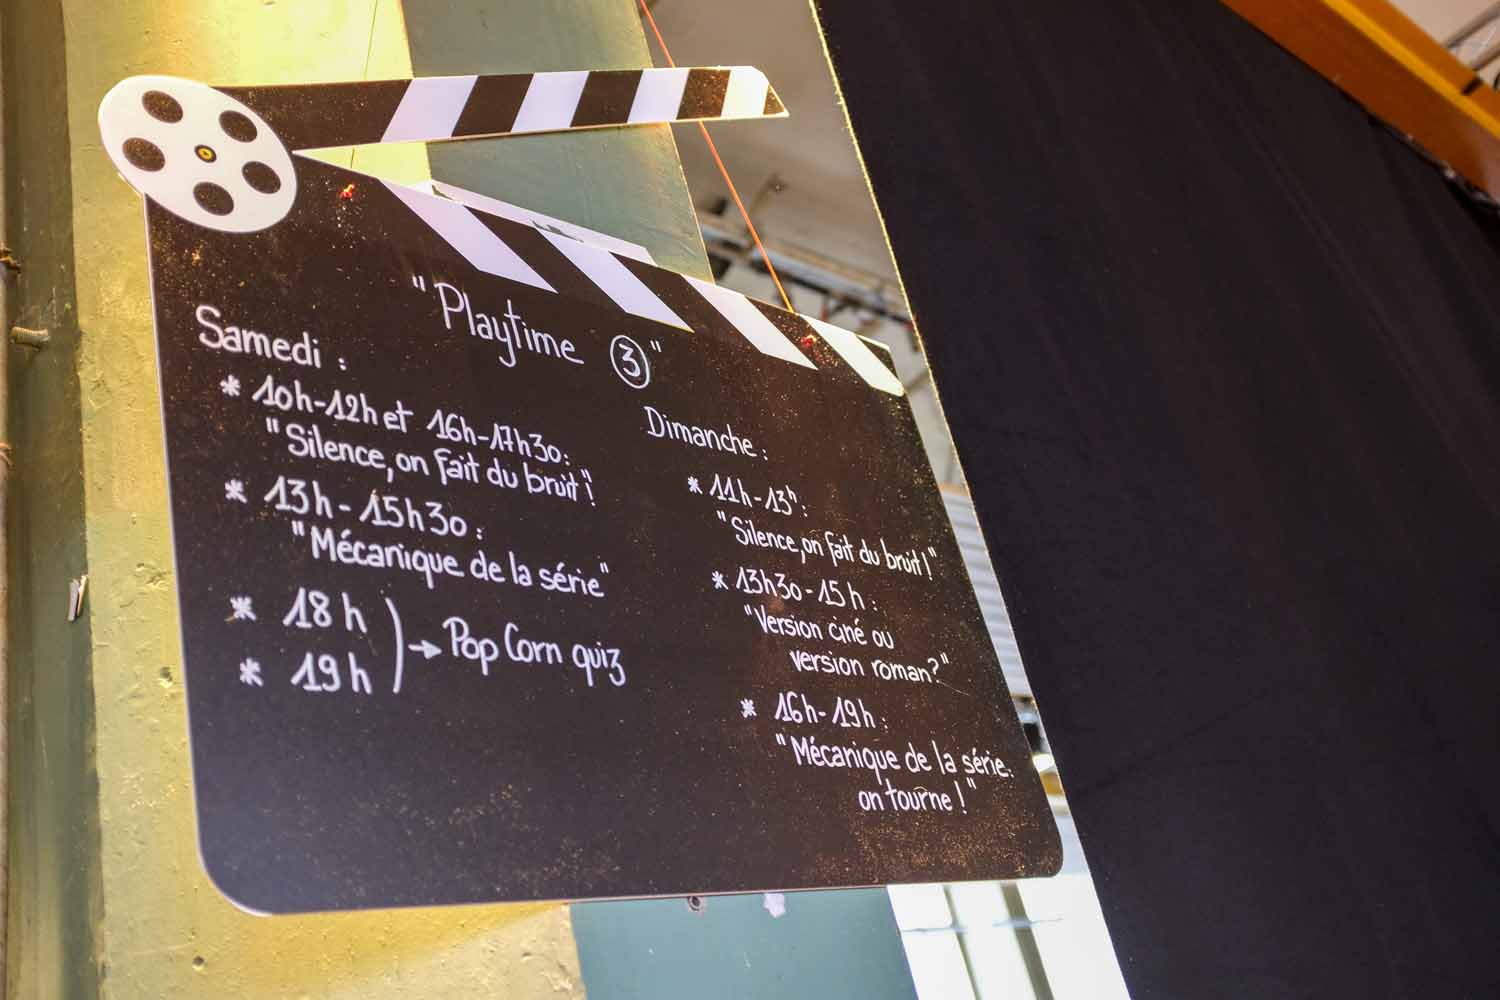 "Playtime ③"
Samedi :
* 10h-12h et 16h-17h30:
"Silence, on fait du bruit"!
* 13h - 15h30 :
"Mécanique de la série"
* 18h
* 19h
→ Pop Corn quiz
Dimanche :
* 11h-13h :
"Silence, on fait du bruit!"
* 13h30-15h :
"Version ciné ou
version roman?"
* 16h-19h :
"Mécanique de la série:
on tourne!"